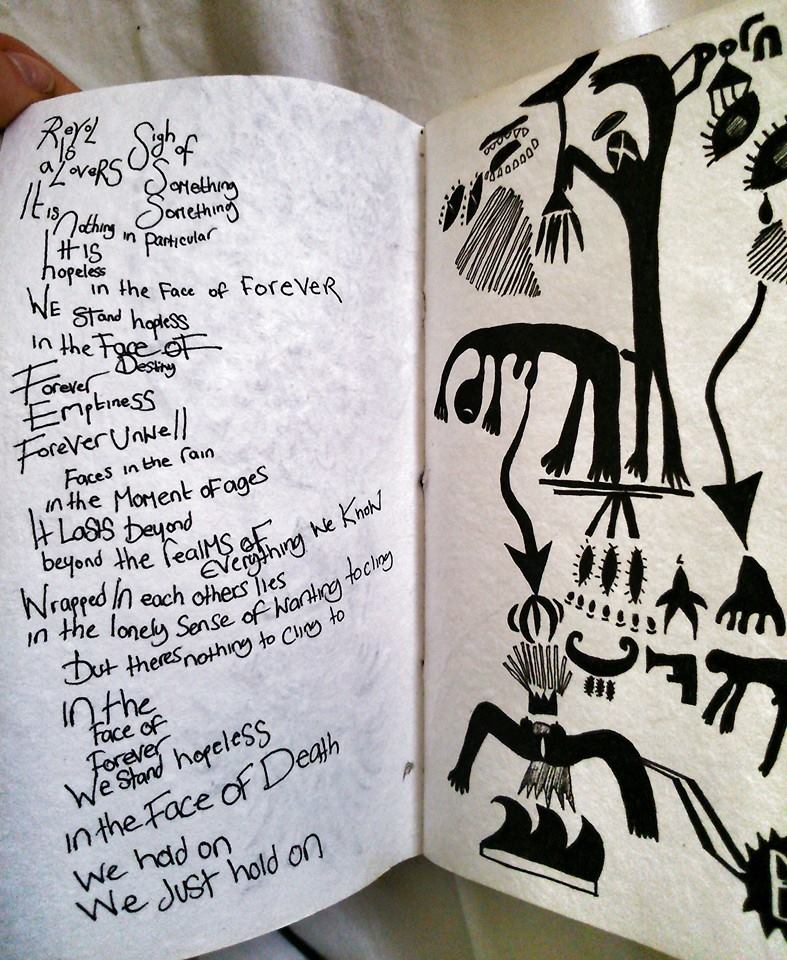 Revol
is
a Lovers Sigh of
Something
It is Something
Nothing in particular
It is
hopeless
in the Face of Forever
WE Stand hopless
in the Face of
Destiny
Forever
Emptiness
Forever Unwell
Faces in the rain
in the Moment of ages
It Lasts beyond
beyond the realms of
everything we Know
Wrapped In each others lies
in the lonely Sense of wanting to cling
but theres nothing to cling to
in the
Face of
Forever
We Stand hopeless
in the Face of Death
We hold on
We Just hold on
porn